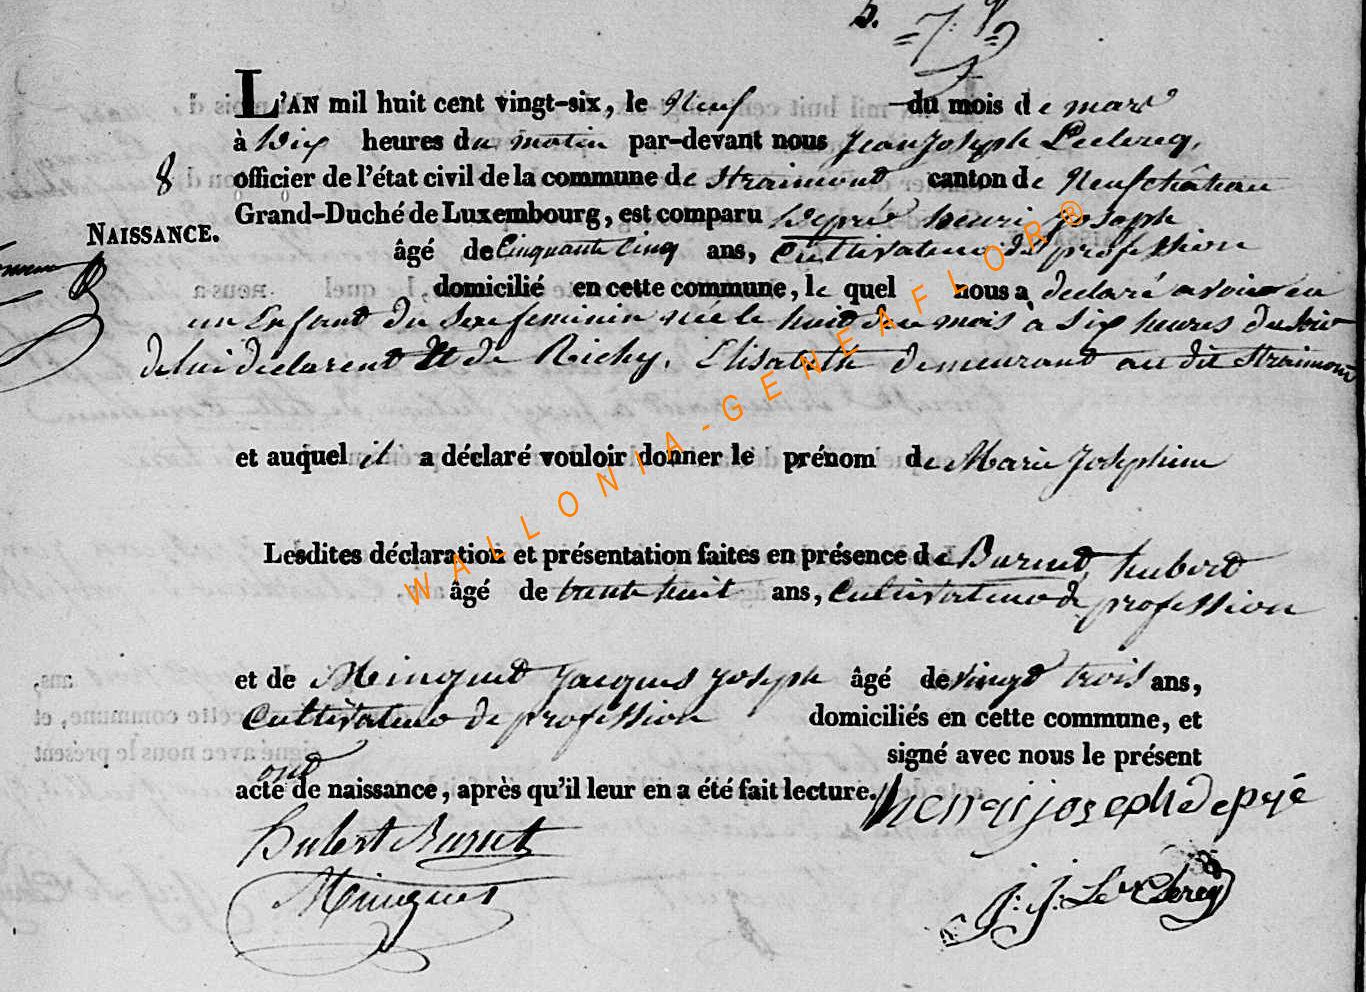 5.
= 7 =
L'AN mil huit cent vingt-six, le Neuf du mois de mars
à Dix heures du matin par-devant nous Jean Joseph Leclercq,
8 officier de l'état civil de la commune de Straimont canton de Neufchâteau
NAISSANCE. Grand-Duché de Luxembourg, est comparu Depyré henri joseph
âgé de Cinquante Cinq ans, Cultivateur de profession
domicilié en cette commune, le quel nous a déclaré avoir eu
un Enfant du Sexe feminin née le huit du mois à Six heures du soir
de lui declarent et de Richy, Elisabeth demeurant au dit Straimont
et auquel il a déclaré vouloir donner le prénom de Marie Josephine
Lesdites déclaration et présentation faites en présence de Burnet, hubert
âgé de trente huit ans, Cultivateur de profession
et de Minguet Jacques Joseph âgé de vingt trois ans,
Cultivateur de profession domiciliés en cette commune, et
ont signé avec nous le présent
acte de naissance, après qu'il leur en a été fait lecture. henri joseph depyé
Hubert Burnet
Minguet
J. J. Leclercq
WALLONIA-GENEAFLOR®